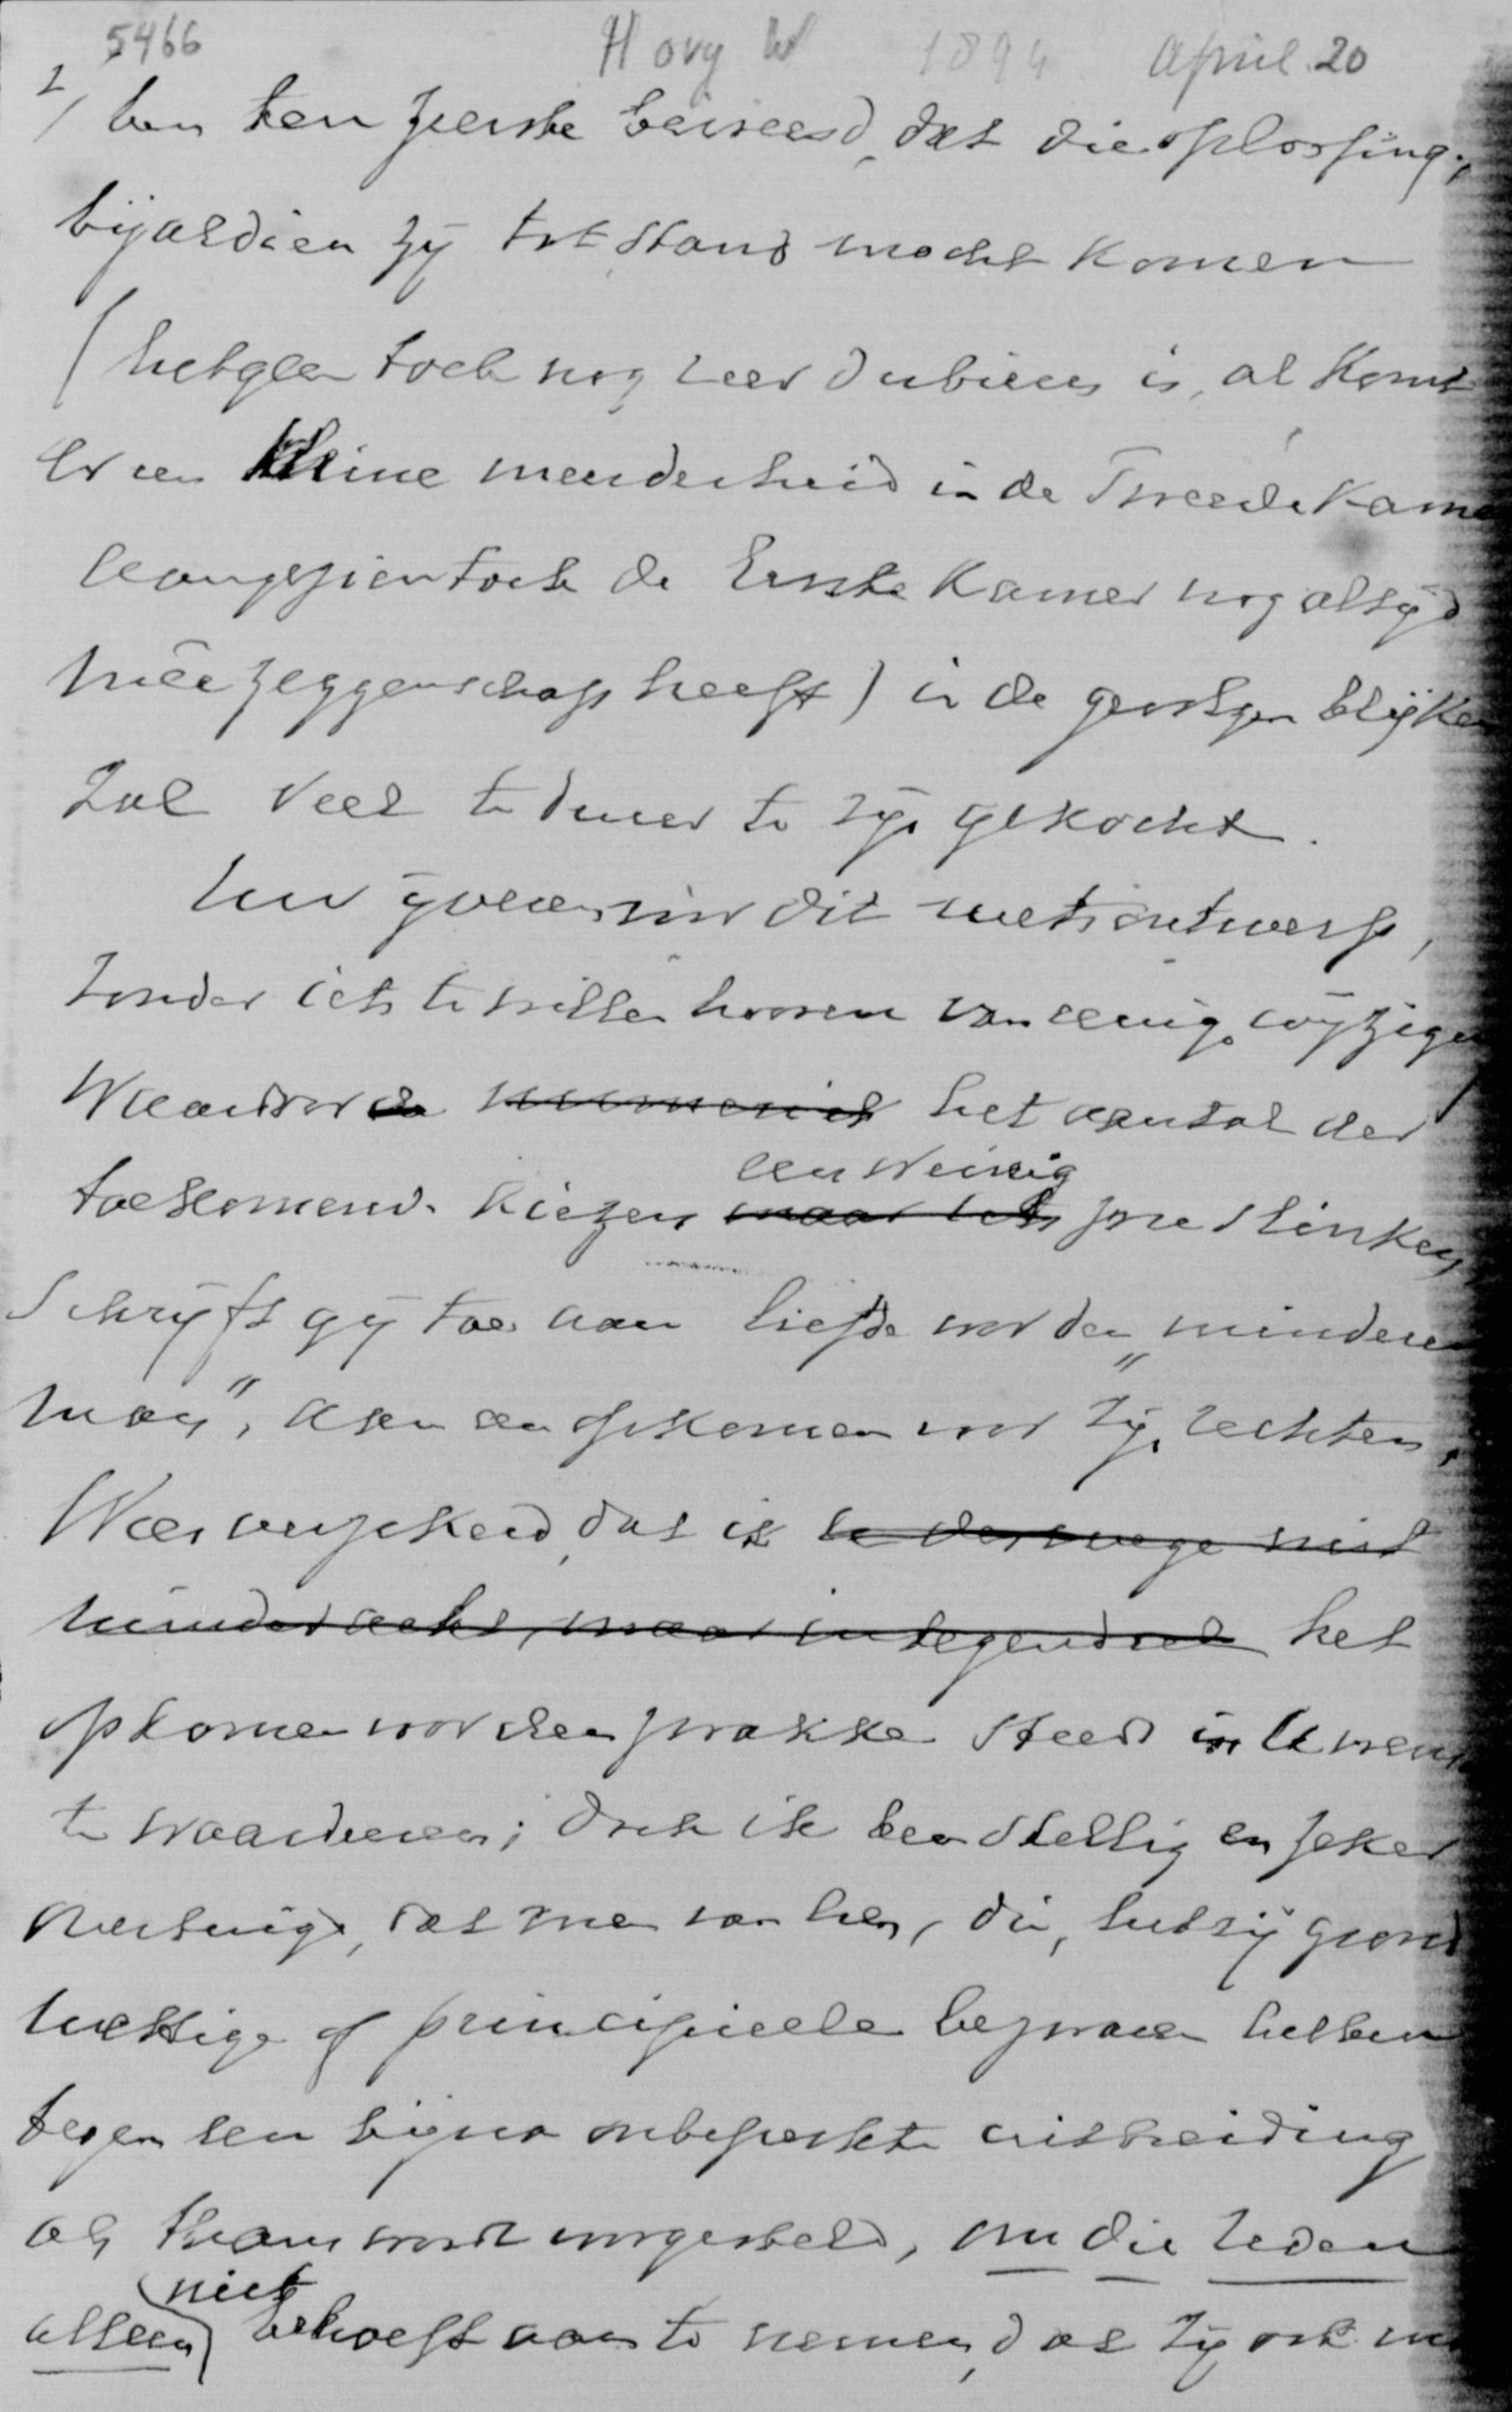 5466 Hovy W 1894 April 20
2/ ben ten zeerste bevreesd, dat die oplossing,
bijaldien zij tot stand mocht komen
(hetgeen toch nog zeer dubieus is, al komt
er een kleine meerderheid in de Tweede Kamer
aangezien toch de Eerste Kamer nog altijd
mêe zeggenschap heeft) in de gevolgen blijken
zal veel te duur te zijn gekocht.
Uw ijveren voor dit wetsontwerp,
zonder iets te willen hooren van eenige wijziging
waardoor de numeriek het aantal der
toekomend. kiezers maar iets een weinig zou slinken
schrijft gij toe aan liefde voor den „mindere
man”, aan een opkomen voor zijn rechten.
Wees verzekerd, dat ik U deswege niet
minder acht, maar integendeel het
opkomen voor den zwakke steeds in U wensch
te waardeeren; doch ik ben stellig en zeker
overtuigd, dat men van hen, die, hetzij grond
wettige of principieele bezwaren hebben
tegen een bijna onbeperkte uitbreiding
als thans wordt voorgesteld, om die reden
alleen niet behoeft aan te nemen, dat zij ook